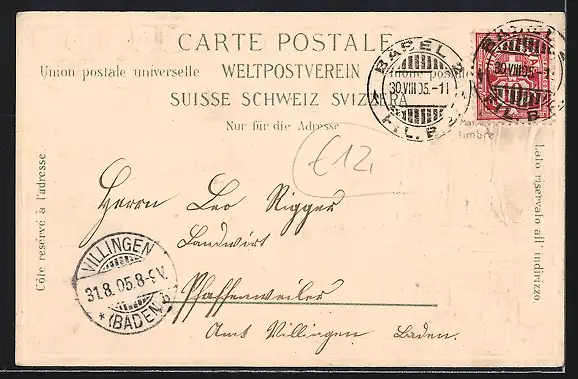 CARTE POSTALE
Union postale universelle WELTPOSTVEREIN Unione postale
SUISSE SCHWEIZ SVIZZERA
Nur für die Adresse
BASEL
30.VIII.05.-11
FIL. B
BASEL
30.VIII.05.
FIL. B
timbre
Côte réservé à l'adresse
Lato riservato all' indirizzo
€12,-
Herrn Leo Rigger
Landwirt
Pfaffenweiler
Amt Villingen Baden.
VILLINGEN
31.8.05.8-9V.
* (BADEN)